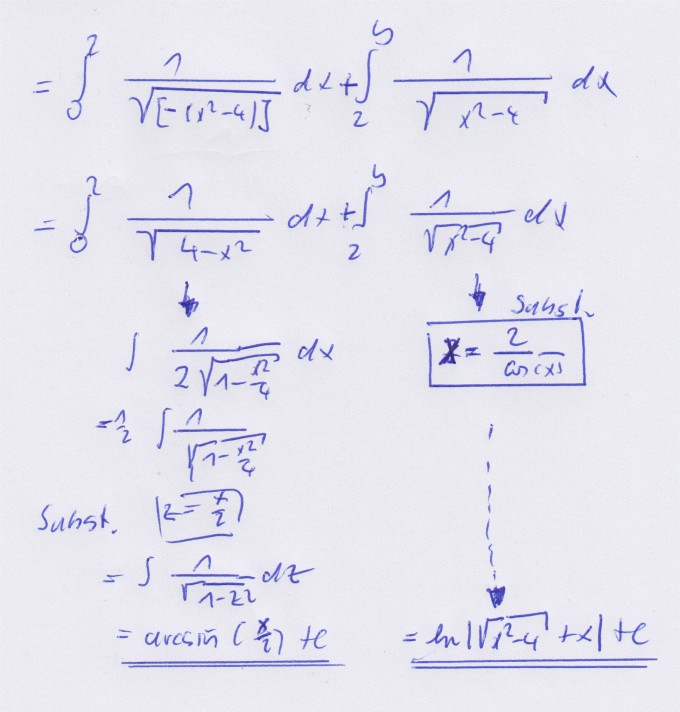 = ∫₀² 1/√[-(x²-4)] dx + ∫₂⁵ 1/√(x²-4) dx
= ∫₀² 1/√(4-x²) dx + ∫₂⁵ 1/√(x²-4) dx
↓ ↓ Subst.
∫ 1/(2√(1-x²/4)) dx x = 2/cos(x)
= 1/2 ∫ 1/√(1-x²/4)
Subst. z = x/2
= ∫ 1/√(1-z²) dz
= arcsin (x/2) + C = ln|√(x²-4) + x| + C